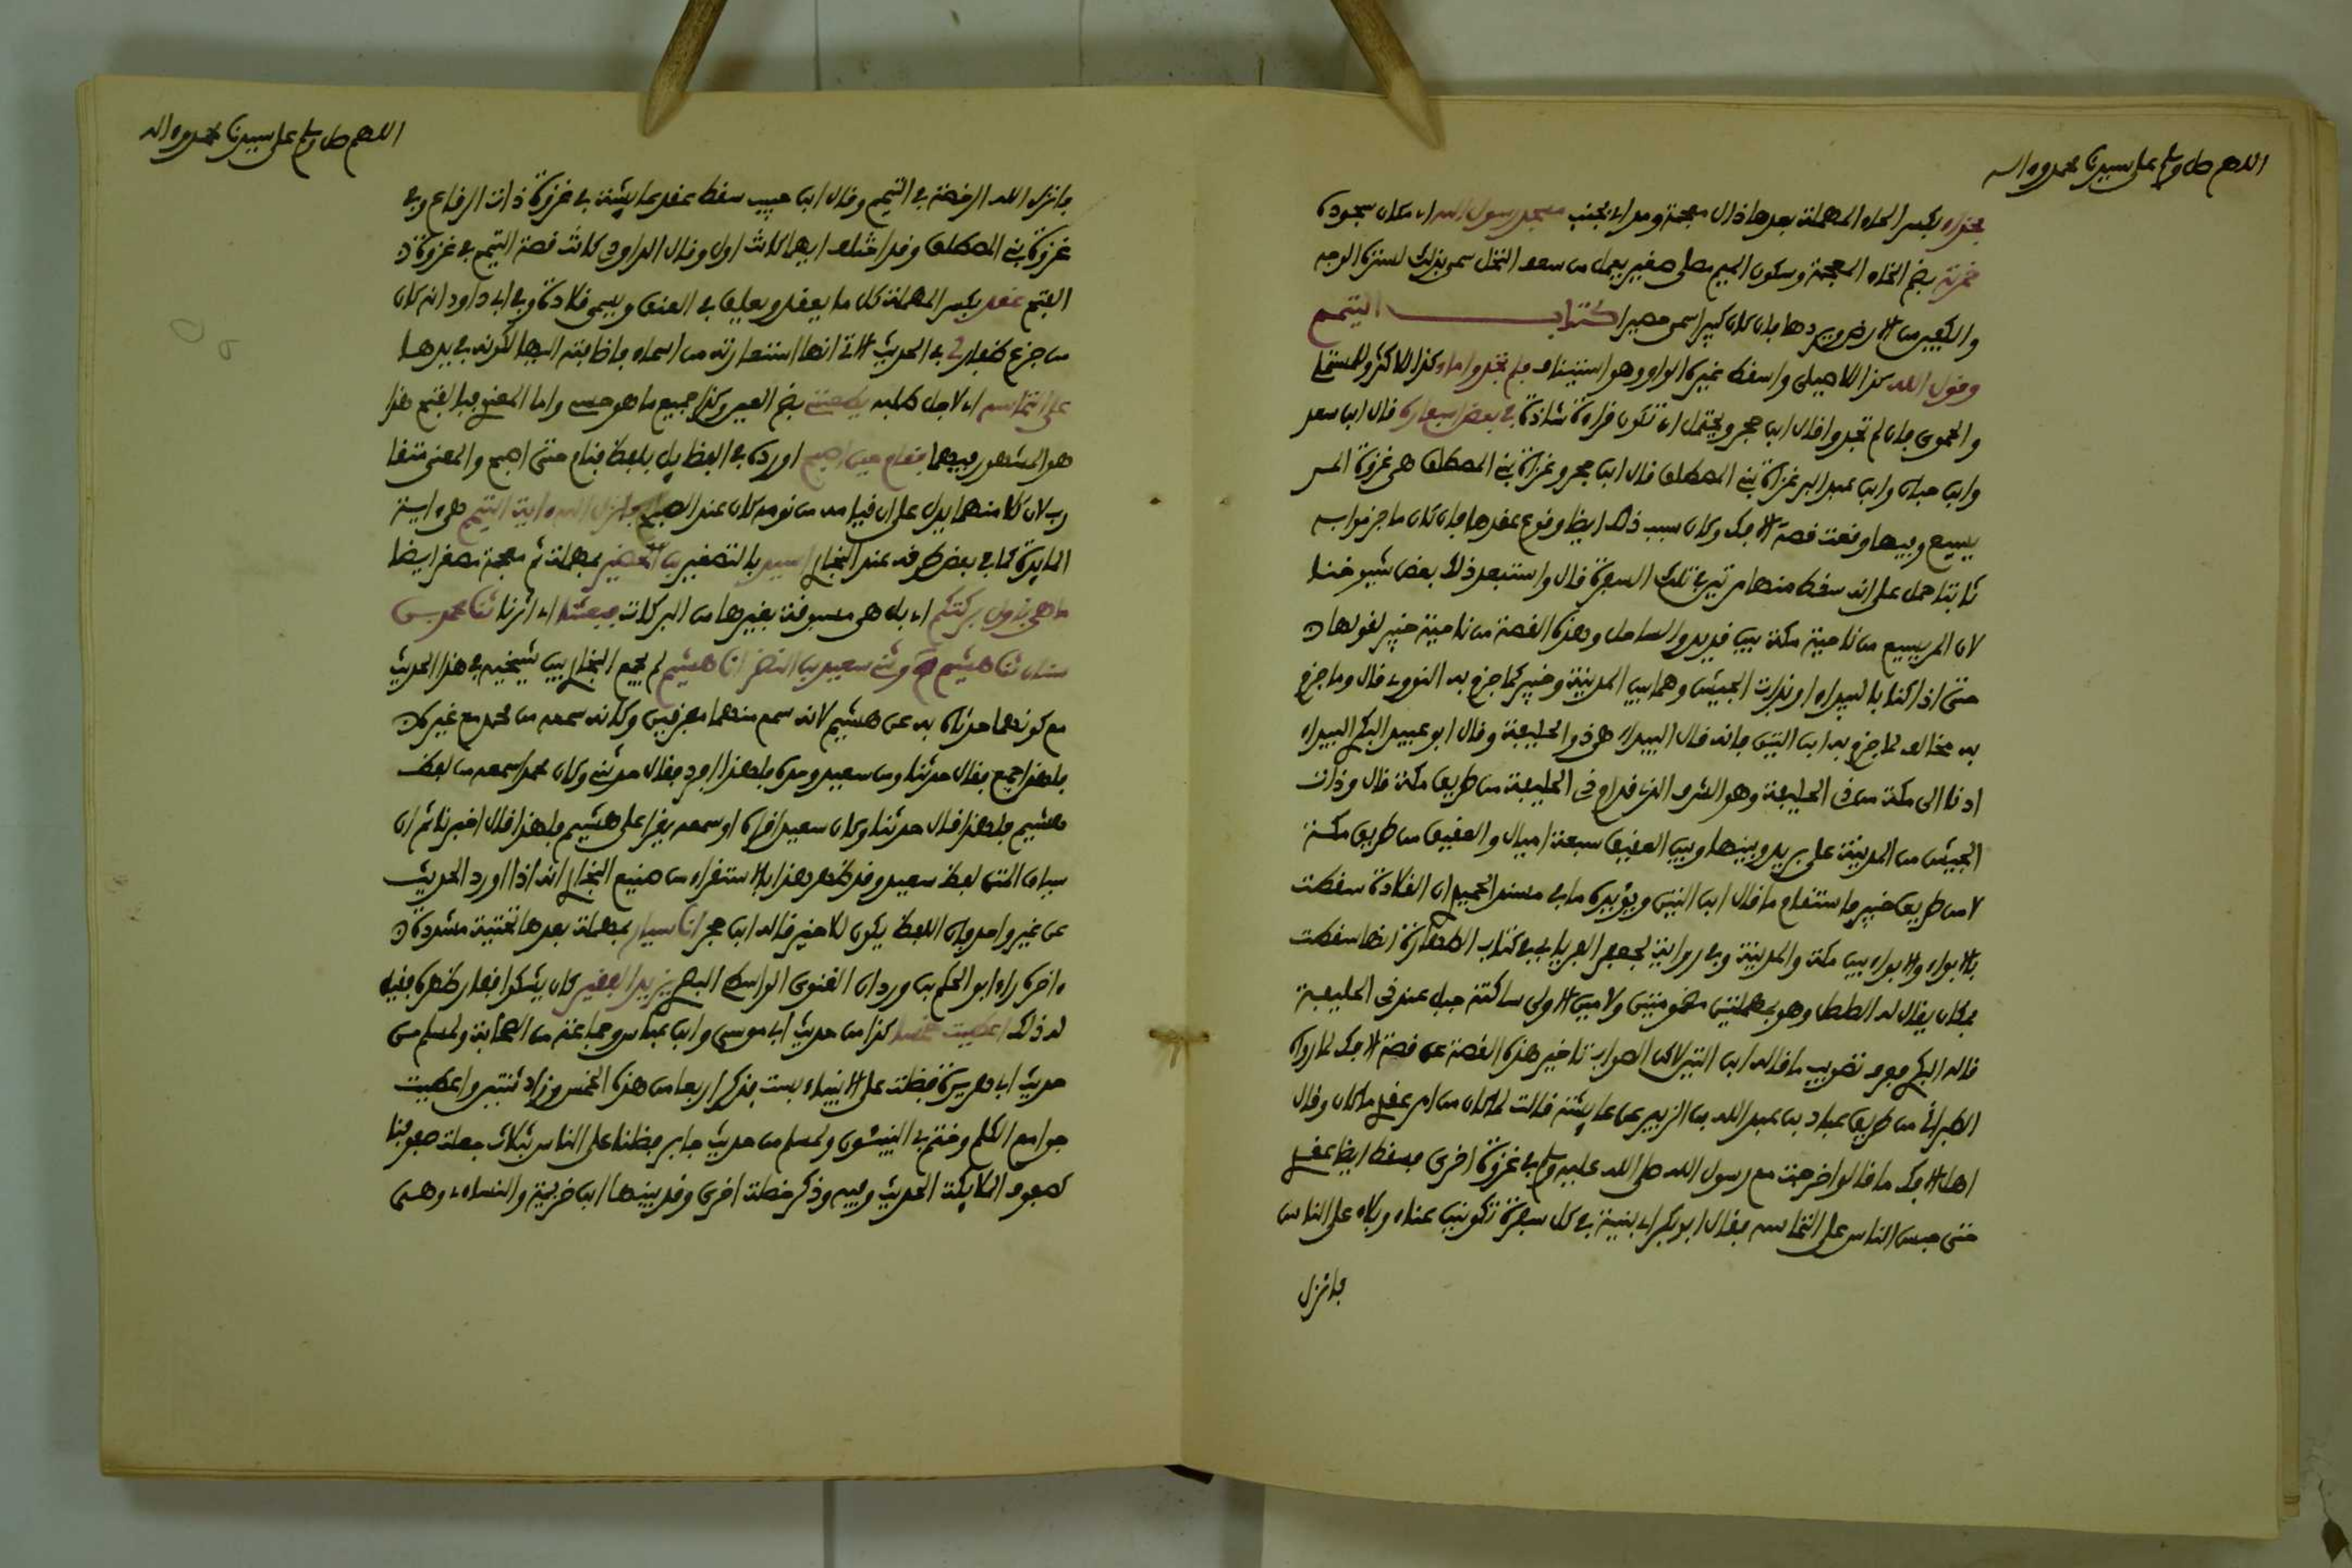 اللهم صل وسلم على سيدنا محمد وءاله
بحذاء بكسر الحاء المهملة بعدها ذال معجمة ومد اي بجنب مسجد رسول الله اي مكان سجوده
خمرة بضم الخاء المعجمة وسكون الميم مصلى صغير يعمل من سعف النخل سمي بذلك لسترها الوجه
والكفين من الارض وبردها فان كان كبيرا سمي حصيرا كتاب التيمم
وقول الله كذا للاصيلي واسقط غيره الواو وهو استيناف فلم تجدوا ماء وكذا للاكثر وللمستملي
والحموي فان لم تجدوا قال ابن حجر ويحتمل ان تكون قراءة شاذة في بعض اسفاره قال ابن سعد
وابن حبان وابن عبد البر غزاة بني المصطلق قال ابن حجر وغزاة بني المصطلق هي غزوة المر
يسيع وفيها وقعت قصة الافك وكان سبب ذلك ايضا وقوع عقدها فان كان ما جزموا به
ثابتا حمل على انه سقط منها مرتين في تلك السفرة قال واستبعد ذلك بعض شيوخنا
لان المريسيع من ناحية مكة بين قديد والساحل وهذه القصة من ناحية خيبر لقولها
حتى اذا كنا بالبيداء او بذات الجيش وهما بين المدينة وخيبر كما جزم به النووي قال وما جزم
به مخالف لما جزم به ابن التين فانه قال البيداء هو ذو الحليفة وقال ابو عبيد البكري البيداء
ادنا الى مكة من ذي الحليفة وهو الشرف الذي قدام ذي الحليفة من طريق مكة قال وذات
الجيش من المدينة على بريد وبينها وبين العقيق سبعة اميال والعقيق من طريق مكة
لا من طريق خيبر فاستقام ما قال ابن التين ويؤيده ما في مسند الحميدي ان القلادة سقطت
بالابواء والابواء بين مكة والمدينة وفي رواية لجعفر الفريابي في كتاب الطهارة انها سقطت
بمكان يقال له الصلصل وهو بمهملتين مضمومتين ولامين الاولى ساكنة جبل عند ذي الحليفة
قاله البكري فعرف تصويب ما قاله ابن التين لاكن الصواب تاخير هذه القصة عن قصة الافك لما رواه
الطبراني من طريق عباد بن عبد الله بن الزبير عن عايشة قالت لما كان من امر عقدي ما كان وقال
اهل الافك ما قالوا خرجت مع رسول الله صلى الله عليه وسلم في غزوة اخرى فسقط ايضا عقدي
حتى حبس الناس على التماسه فقال ابو بكر اي بنية في كل سفرة تكونين عناء وبلاء على الناس
فانزل
اللهم صل وسلم على سيدنا محمد وءاله
فانزل الله الرخصة في التيمم وقال ابن حبيب سقط عقد عايشة في غزوة ذات الرقاع وفي
غزوة بني المصطلق وقد اختلف ايهما كانت اول وقال الداودي كانت قصة التيمم في غزوة
الفتح عقد بكسر المهملة كل ما يعقد ويعلق في العنق ويسمى قلادة وفي ابي داود انه كان
من جزع ظفار لي في الحديث الاتي انها استعارته من اسماء فاضافته اليها لكونه في يدها
على التماسه اي لاجل طلبه يطعنني بضم العين وكذا جميع ما هو حسي واما المعنوي فبالفتح هذا
هو المشهور فيهما فقام حين اصبح اورده في الفضايل بلفظ فنام حتى اصبح والمعنى متقا
رب لان كلا منهما يدل على ان قيامه من نومه كان عند الصبح فانزل الله ءاية التيمم هي ءاية
المايدة كما في بعض طرقه عند البخاري اسيد بالتصغير بن الحضير بمهملة ثم معجمة مصغر ايضا
ما هي باول بركتكم اي بل هي مسبوقة بغيرها من البركات فبعثنا اي اثرنا ثنا محمد بن
سنان ثنا هشيم ح وثني سعيد بن النضر انا هشيم لم يجمع البخاري بين شيخيه في هذا الحديث
مع كونهما حدثاه به عن هشيم لانه سمعه منهما مفترقين وكانه سمعه من محمد مع غيره
فلهذا جمع فقال حدثنا ومن سعيد وحده فلهذا افرد فقال حدثني وكان محمدا سمعه من لفظ
هشيم فلهذا قال حدثنا وكان سعيدا قراه او سمعه يقرا على هشيم فلهذا قال اخبرنا ثم ان
سياق المتن لفظ سعيد وقد ظهر هذا بالاستقراء من صنيع البخاري انه اذا اورد الحديث
عن غير واحد فان اللفظ يكون للاخير قاله ابن حجر انا سيار بمهملة بعدها تحتية مشددة
ءاخره راء ابو الحكم بن وردان العنزي الواسطي البصري يزيد الفقير كان يشكو افقار ظهره فقيل
له ذلك اعطيت خمسا كذا من حديث ابي موسى وابن عباس وجماعة من الصحابة ولمسلم من
حديث ابي هريرة فضلت على الانبياء بست فذكر اربعا من هذه الخمس وزاد ثنتين واعطيت
جوامع الكلم وختم بي النبيئون ولمسلم من حديث جابر فضلنا على الناس بثلاث جعلت صفوفنا
كصفوف الملايكة الحديث وفيه وذكر خصلة اخرى وقد بينها ابن خزيمة والنساءي وهي